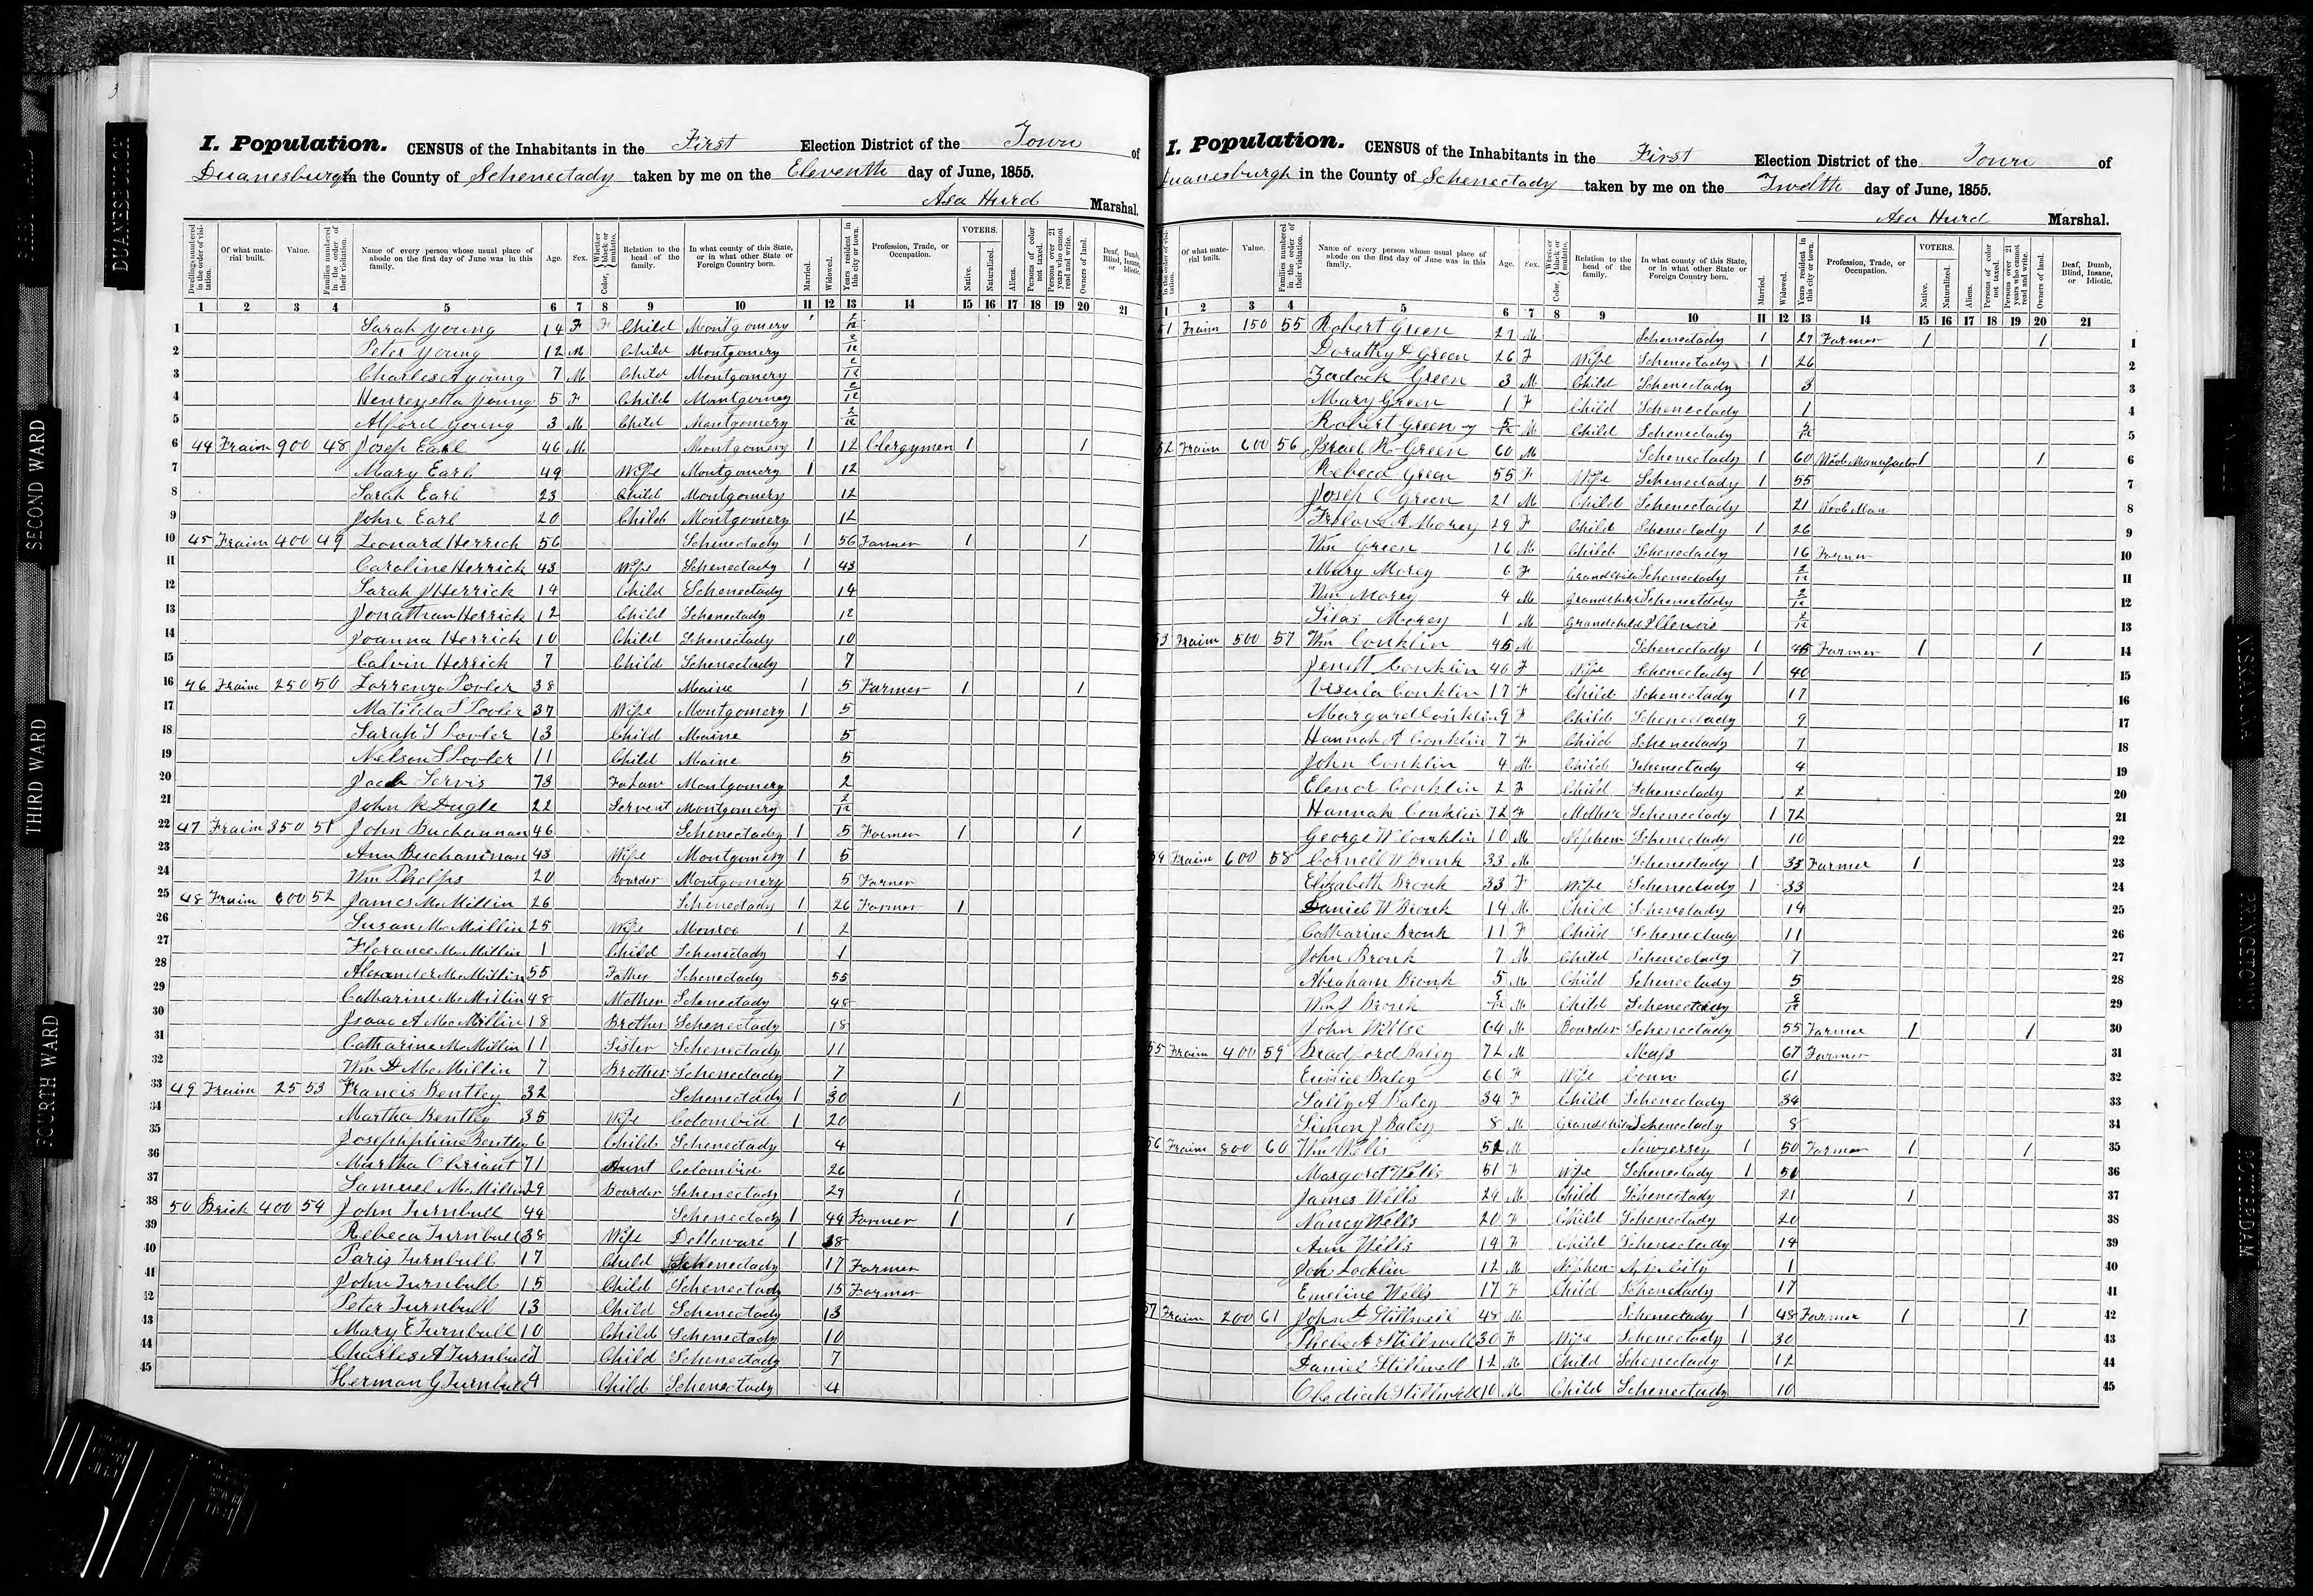 3
DUANESBURGH
SECOND WARD
THIRD WARD
FOURTH WARD
I. Population. CENSUS of the Inhabitants in the First Election District of the Town of
Duanesburgh in the County of Schenectady taken by me on the Eleventh day of June, 1855.
Asa Hurd Marshal.
Dwellings numbered in the order of visitation. Of what material built. Value. Families numbered in the order of their visitation. Name of every person whose usual place of abode on the first day of June was in this family. Age. Sex. Color, Whether black or mulatto. Relation to the head of the family. In what county of this State, or in what other State or Foreign Country born. Married. Widowed. Years resident in this city or town. Profession, Trade, or Occupation. VOTERS. Native. Naturalized. Aliens. Persons of color not taxed. Persons over 21 years who cannot read and write. Owners of land. Deaf, Dumb, Blind, Insane, or Idiotic.
1 2 3 4 5 6 7 8 9 10 11 12 13 14 15 16 17 18 19 20 21
1 Sarah Young 14 F F Child Montgomery 2/12
2 Peter Young 12 M Child Montgomery 2/12
3 Charles A Young 7 M Child Montgomery 2/12
4 Henreyetta Young 5 F Child Montgomery 2/12
5 Alford Young 3 M Child Montgomery 2/12
6 44 Fraim 900 48 Josep Earl 46 M Montgomery 1 12 Clergymen 1 1
7 Mary Earl 49 Wife Montgomery 1 12
8 Sarah Earl 23 Child Montgomery 12
9 John Earl 20 Child Montgomery 12
10 45 Fraim 400 49 Leonard Herrick 56 Schenectady 1 56 Farmer 1 1
11 Caroline Herrick 43 Wife Schenectady 1 43
12 Sarah J Herrick 14 Child Schenectady 14
13 Jonathan Herrick 12 Child Schenectady 12
14 Joanna Herrick 10 Child Schenectady 10
15 Calvin Herrick 7 Child Schenectady 7
16 46 Fraim 250 50 Lorrenzo Pooler 38 Maine 1 5 Farmer 1 1
17 Matilda S Pooler 37 Wife Montgomery 1 5
18 Sarah S Pooler 13 Child Maine 5
19 Nelson S Pooler 11 Child Maine 5
20 Jacob Servis 73 Fa Law Montgomery 2
21 John K Dugle 22 Servent Montgomery 2/12
22 47 Fraim 350 51 John Buchannan 46 Schenectady 1 5 Farmer 1 1
23 Ann Buchannan 43 Wife Montgomery 1 5
24 Wm Phelps 20 Boarder Montgomery 5 Farmer
25 48 Fraim 600 52 James McMillin 26 Schenectady 1 26 Farmer 1
26 Susan McMillin 25 Wife Monroe 1 2
27 Florance McMillin 1 Child Schenectady 1
28 Alexander McMillin 55 Father Schenectady 55
29 Catharine McMillin 48 Mother Schenectady 48
30 Isaac A McMillin 18 Brother Schenectady 18
31 Catharine McMillin 11 Sister Schenectady 11
32 Wm D McMillin 7 Brother Schenectady 7
33 49 Fraim 25 53 Francis Bentley 32 Schenectady 1 30 1
34 Martha Bentley 35 Wife Colombid 1 20
35 Josephphine Bentley 6 Child Schenectady 4
36 Martha Obriant 71 Aunt Colombia 26
37 Samuel McMillin 29 Boarder Schenectady 29 1
38 50 Brick 400 54 John Turnbull 44 Schenectady 1 44 Farmer 1 1
39 Rebeca Turnbull 38 Wife Delleware 1 18
40 Paris Turnbull 17 Child Schenectady 17 Farmer
41 John Turnbull 15 Child Schenectady 15 Farmer
42 Peter Turnbull 13 Child Schenectady 13
43 Mary E Turnbull 10 Child Schenectady 10
44 Charles A Turnbull 7 Child Schenectady 7
45 Herman G Turnbull 4 Child Schenectady 4
I. Population. CENSUS of the Inhabitants in the First Election District of the Town of
Duanesburgh in the County of Schenectady taken by me on the Twelth day of June, 1855.
Asa Hurd Marshal.
Dwellings numbered in the order of visitation. Of what material built. Value. Families numbered in the order of their visitation. Name of every person whose usual place of abode on the first day of June was in this family. Age. Sex. Color, Whether black or mulatto. Relation to the head of the family. In what county of this State, or in what other State or Foreign Country born. Married. Widowed. Years resident in this city or town. Profession, Trade, or Occupation. VOTERS. Native. Naturalized. Aliens. Persons of color not taxed. Persons over 21 years who cannot read and write. Owners of land. Deaf, Dumb, Blind, Insane, or Idiotic.
1 2 3 4 5 6 7 8 9 10 11 12 13 14 15 16 17 18 19 20 21
51 Fraim 150 55 Robert Green 27 M Schenectady 1 27 Farmer 1 1 1
Dorathy A Green 26 F Wife Schenectady 1 26 2
Zadock Green 3 M Child Schenectady 3 3
Mary Green 1 F Child Schenectady 1 4
Robert Green 5/12 M Child Schenectady 5/12 5
52 Fraim 600 56 Israel R Green 60 M Schenectady 1 60 Wool Manufactor 1 1 6
Rebeca Green 55 F Wife Schenectady 1 55 7
Joseph C Green 21 M Child Schenectady 21 Wool Man 8
A Morey 29 F Child Schenectady 1 26 9
Wm Green 16 M Child Schenectady 16 Farmer 10
Mary Morey 6 F Grandchild Schenectady 2/12 11
Wm Morey 4 M Grandchild Schenectddy 2/12 12
Silas Morey 1 M Grandchild Illenois 2/12 13
53 Fraim 500 57 Wm Conklin 45 M Schenectady 1 45 Farmer 1 1 14
Jenett Conklin 46 F Wife Schenectady 1 40 15
Ursula Conklin 17 F Child Schenectady 17 16
Margaret Conklin 9 F Child Schenectady 9 17
Hannah A Conklin 7 F Child Schenectady 7 18
John Conklin 4 M Child Schenectady 4 19
Elenor Conklin 2 F Child Schenectady 2 20
Hannah Conklin 72 F Mother Schenectady 1 72 21
George W Conklin 10 M Nephew Schenectady 10 22
54 Fraim 600 58 Cornell W Bronk 33 M Schenectady 1 33 Farmer 1 23
Elizabeth Bronk 33 F Wife Schenectady 1 33 24
Daniel W Bronk 14 M Child Schenetady 14 25
Catharine Bronk 11 F Child Schenectady 11 26
John Bronk 7 M Child Schenectady 7 27
Abraham Bronk 5 M Child Schenectady 5 28
Wm J Bronk 8/12 M Child Schenectady 8/12 29
John Wiltse 64 M Boarder Schenectady 55 Farmer 1 1 30
55 Fraim 400 59 Bradford Baley 72 M Mass 67 Farmer 31
Eunice Baley 66 F Wife Conn 61 32
Sally A Baley 34 F Child Schenectady 34 33
Simon J Baley 8 M Grandchild Schenectady 8 34
56 Fraim 800 60 Wm Wells 52 M Newjersey 1 50 Farmer 1 1 35
Margaret Wells 51 F Wife Schenectady 1 51 36
James Wells 24 M Child Schenectady 21 1 37
Nancy Wells 20 F Child Schenectady 20 38
Ann Wells 14 F Child Schenectady 14 39
Joh Locklin 12 M Nephew N.Y. City 1 40
Emeline Wells 17 F Child Schenectady 17 41
57 Fraim 200 61 John D Stillwell 48 M Schenectady 1 48 Farmer 1 1 42
Phebe A Stillwell 30 F Wife Schenectady 1 30 43
Daniel Stillwell 12 M Child Schenectady 12 44
Obediah Stillwell 10 M Child Schenectady 10 45
NISKAYUNA
PRINCETOWN
ROTTERDAM